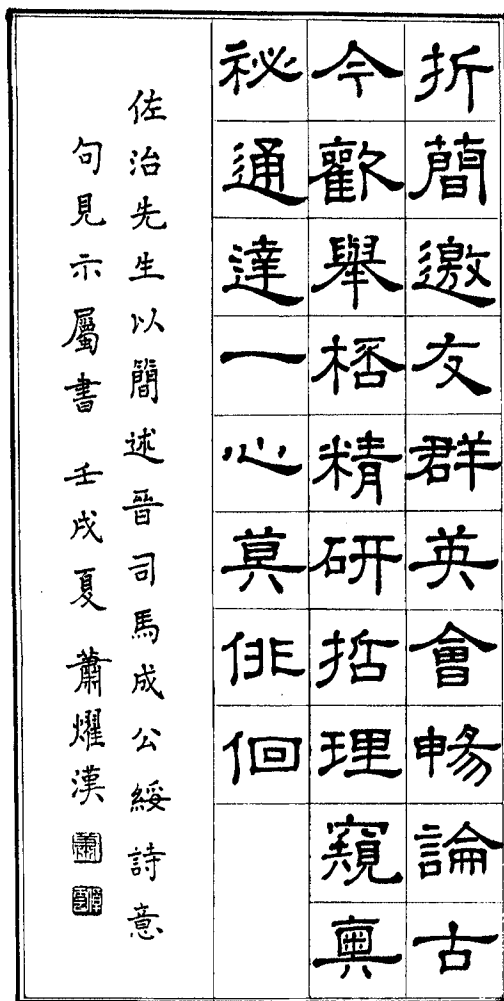 折簡邀友群英會暢論古
今歡舉桮精研哲理窺奧
祕通達一心莫俳佪
佐治先生以簡述晉司馬成公綏詩意
句見示屬書 壬戌夏 蕭燿漢